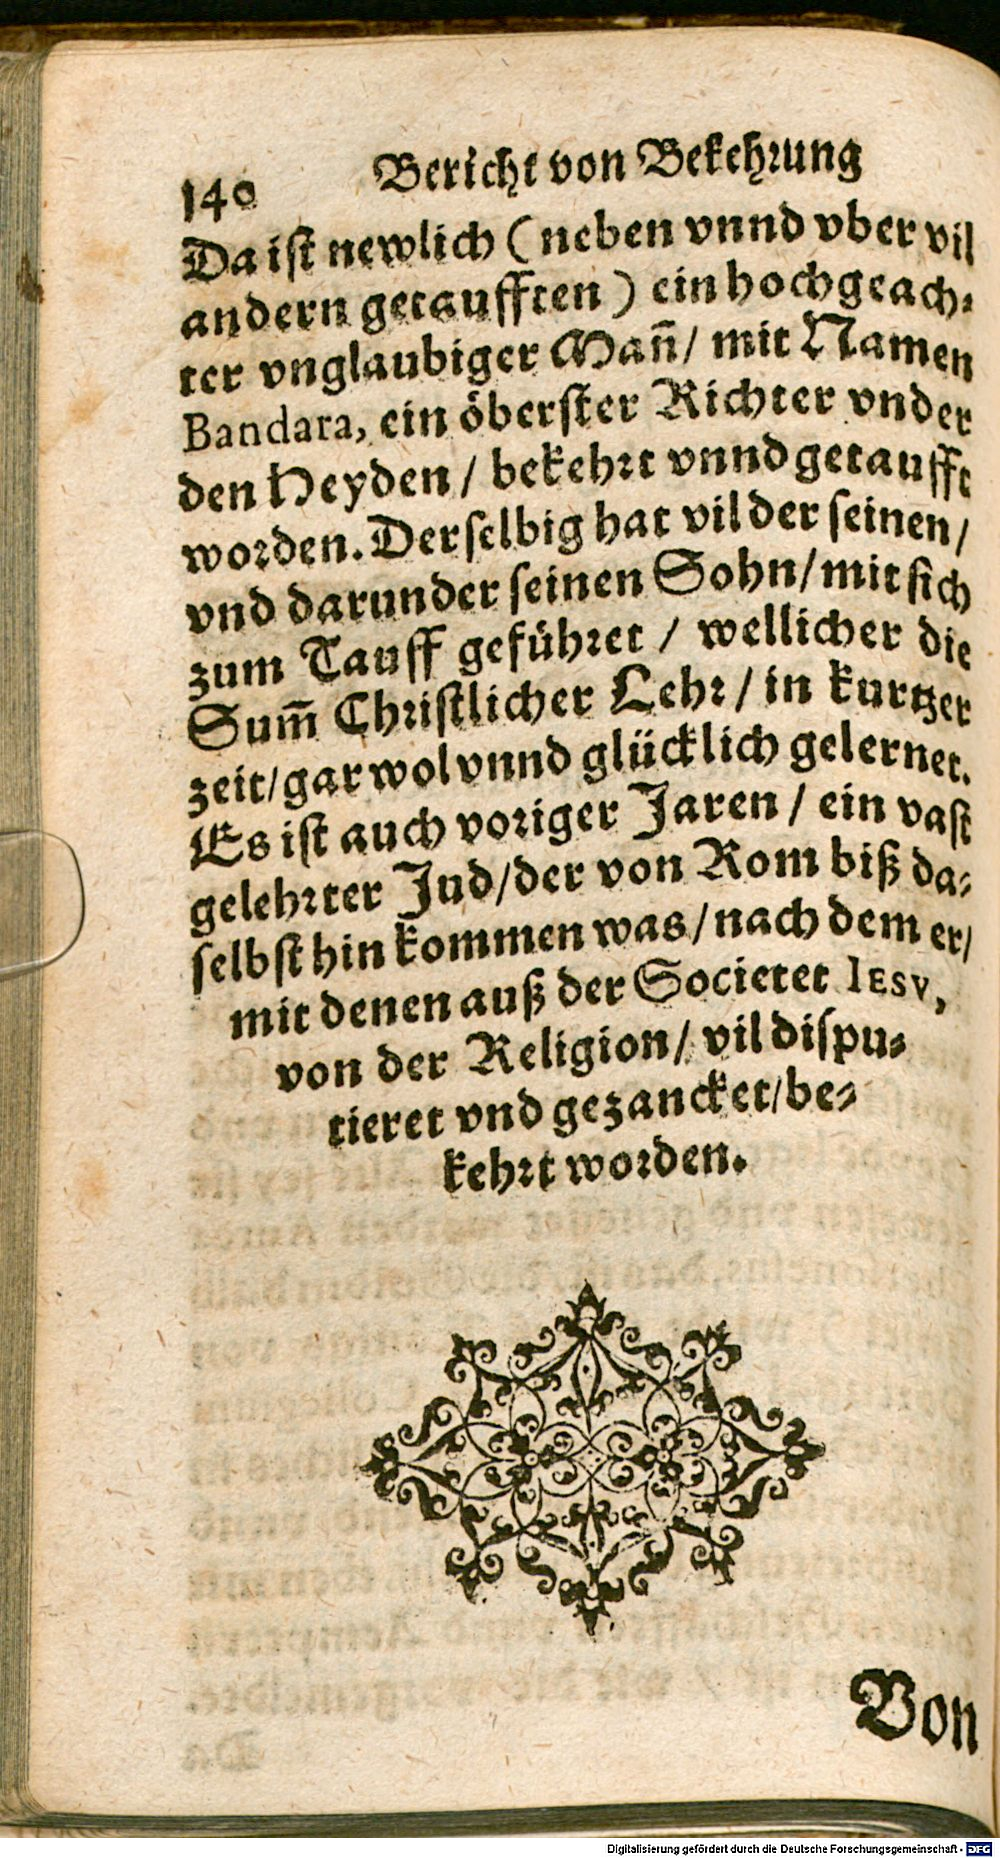 140 Bericht von Bekehrung
Da iſt newlich ( neben vnnd vber vil
andern getaufften ) ein hochgeach⸗
ter vnglaubiger Mañ/ mit Namen
Bandara, ein öberſter Richter vnder
den Heyden / bekehrt vnnd getaufft
worden. Derſelbig hat vil der ſeinen /
vnd darunder ſeinen Sohn/ mit ſich
zum Tauff geführet / wellicher die
Sum̃ Chriſtlicher Lehr / in kurtzer
zeit/ gar wol vnnd glücklich gelernet.
Es iſt auch voriger Jaren / ein vaſt
gelehrter Jud/ der von Rom biß da⸗
ſelbſt hin kommen was/ nach dem er/
mit denen auß der Societet IESV,
von der Religion/ vil diſpu⸗
tieret vnd gezancket/ be⸗
kehrt worden.
Von
Digitalisierung gefördert durch die Deutsche Forschungsgemeinschaft - DFG